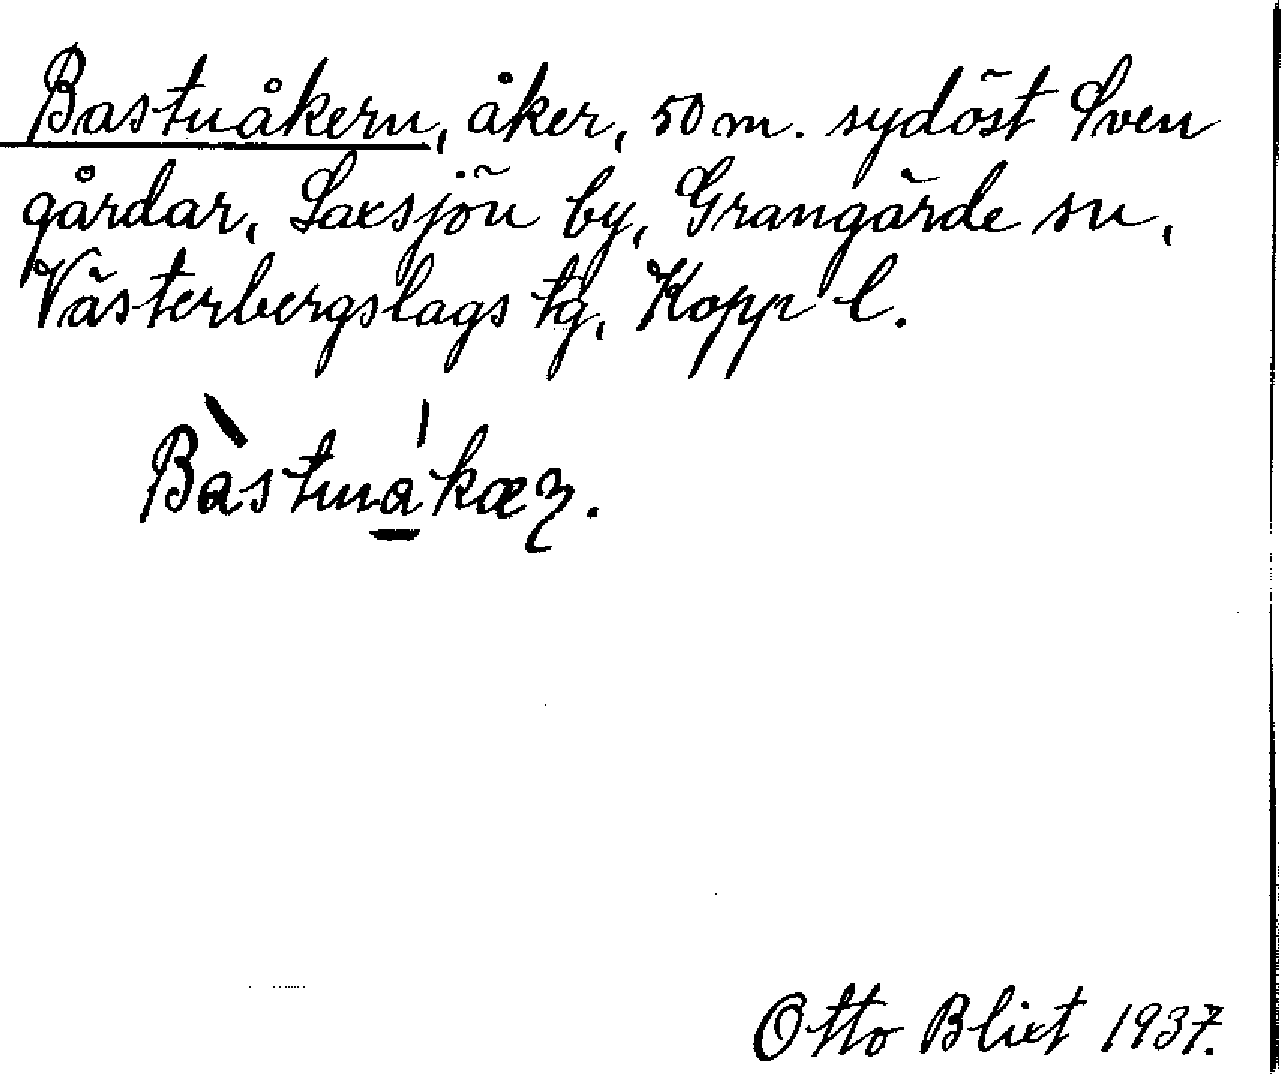 Bastuåkern, åker, 50 m. sydöst Sven
gårdar, Saxsjön by, Grangärde sn,
Västerbergslags tg, Kopp l.
Bàstuákæɳ.
Otto Blixt 1937.